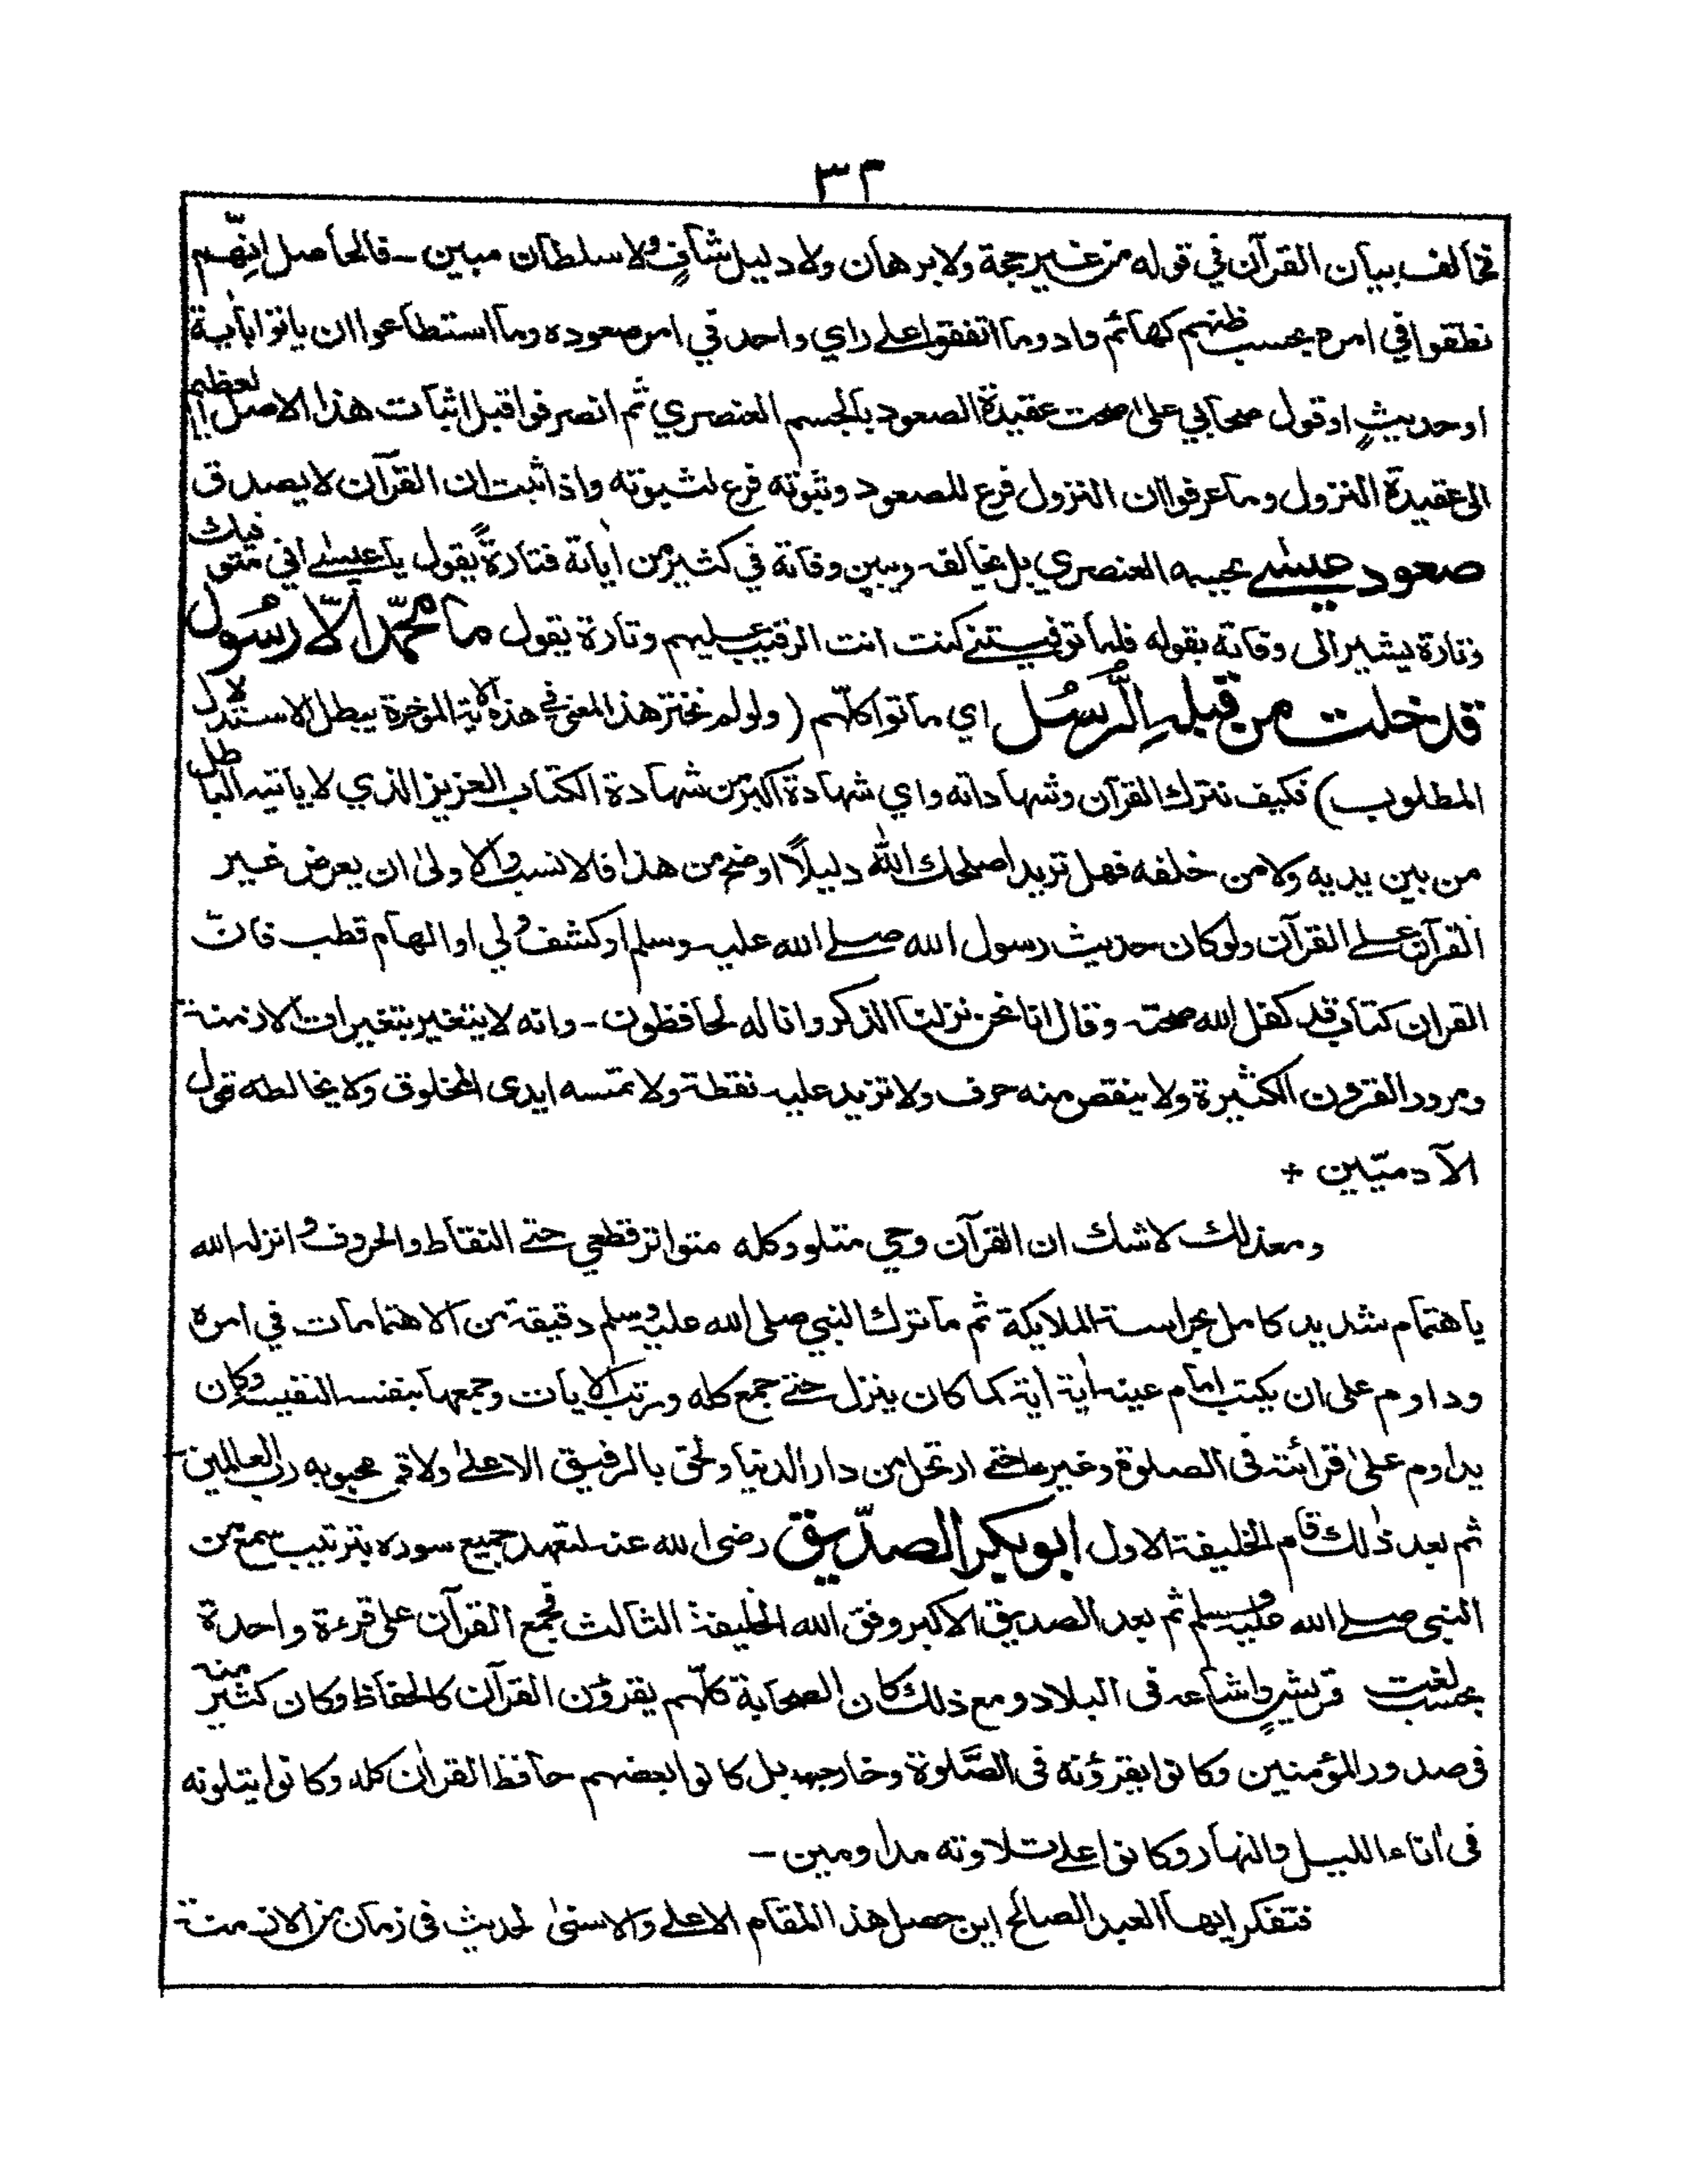 ٣٢
تخالف بيان القرآن في قوله من غير حجة ولا برهان ولا دليل شافٍ ولا سلطان مبين - فالحاصل انّهم
نطقوا في امره بحسب ظنهم كهائم واد وما اتفقوا على راي واحد في امر صعوده وما استطاعوا ان ياتوا بآية
او حديثٍ او قول صحابي على صحت عقيدة الصعود بالجسم العنصري ثم انصرفوا قبل اثبات هذا الاصل العظيم
الى عقيدة النزول وما عرفوا ان النزول فرع للصعود وثبوته فرع لثبوته واذا ثبت ان القرآن لا يصدق
صعود عيسى بجسمه العنصري بل يخالفه ويبين وفاته في كثير من اٰياته فتارةً يقول يا عيسىٰ اني متوفيك
وتارة يشير الى وفاته بقوله فلما توفيتنى كنت انت الرقيب عليهم وتارة يقول ما محمّد الّا رسُول
قد خلت من قبله الرُّسُل اي ماتوا كلّهم (ولو لم نختر هذا المعنى في هذه الآية المؤخرة يبطل الاستدلال
المطلوب) فكيف نترك القرآن وشهاداته واي شهادة اكبر من شهادة الكتاب العزيز الذي لا ياتيه الباطل
من بين يديه ولا من خلفه فهل تريد اصلحك الله دليلًا اوضح من هذا فالانسب والاولىٰ ان يعرض غير
القرآن على القرآن ولو كان حديث رسول الله صلے الله عليه وسلم او كشف ولي او الهام قطب فانّ
القران كتاب قد كفل الله صحته وقال انا نحن نزلنا الذكر وانا له لحافظون - وانه لا يتغير بتغيرات الازمنة
ومرور القرون الكثيرة ولا ينقص منه حرف ولا تزيد عليه نقطة ولا تمسه ايدى المخلوق ولا يخالطه قول
الآدميّين +
ومعذلك لا شك ان القرآن وحي متلو وكله متواتر قطعي حتے النقاط والحروف وانزله الله
باهتمام شديد كامل بحراسة الملايكة ثم ما ترك النبي صلى الله عليه وسلم دقيقة من الاهتمامات في امره
وداوم على ان يكتب امام عينه اٰية اٰية كما كان ينزل حتے جمع كله ورتب الآيات وجمعها بنفسه النفيسه وكان
يداوم علىٰ قرائته فى الصلوة وغيرها حتے ارتحل من دار الدنيا ولحق بالرفيق الاعلىٰ ولاقى محبوبه ربّ العالمين -
ثم بعد ذٰلك قام الخليفة الاول ابو بكر الصدّيق رضى الله عنه لتعهد جميع سوره بترتيب سمع من
النبى صلے الله عليه وسلم ثم بعد الصديق الاكبر وفق الله الخليفة الثالث فجمع القرآن على قرءة واحدة
بحسب لغت قريشٍ واشاعه فى البلاد ومع ذلك كان الصحابة كلّهم يقرؤن القرآن كالحفاظ وكان كثير منه
فى صدور المؤمنين وكانوا يقرؤنه فى الصّلوة وخارجها بل كانوا بعضهم حافظ القراٰن كله وكانوا يتلونه
فى اٰناء الليل والنهار وكانوا على تلاوته مداومين -
فتفكر ايها العبد الصالح اين حصل هذا المقام الاعلے والاسنىٰ لحديث فى زمان من الازمنة